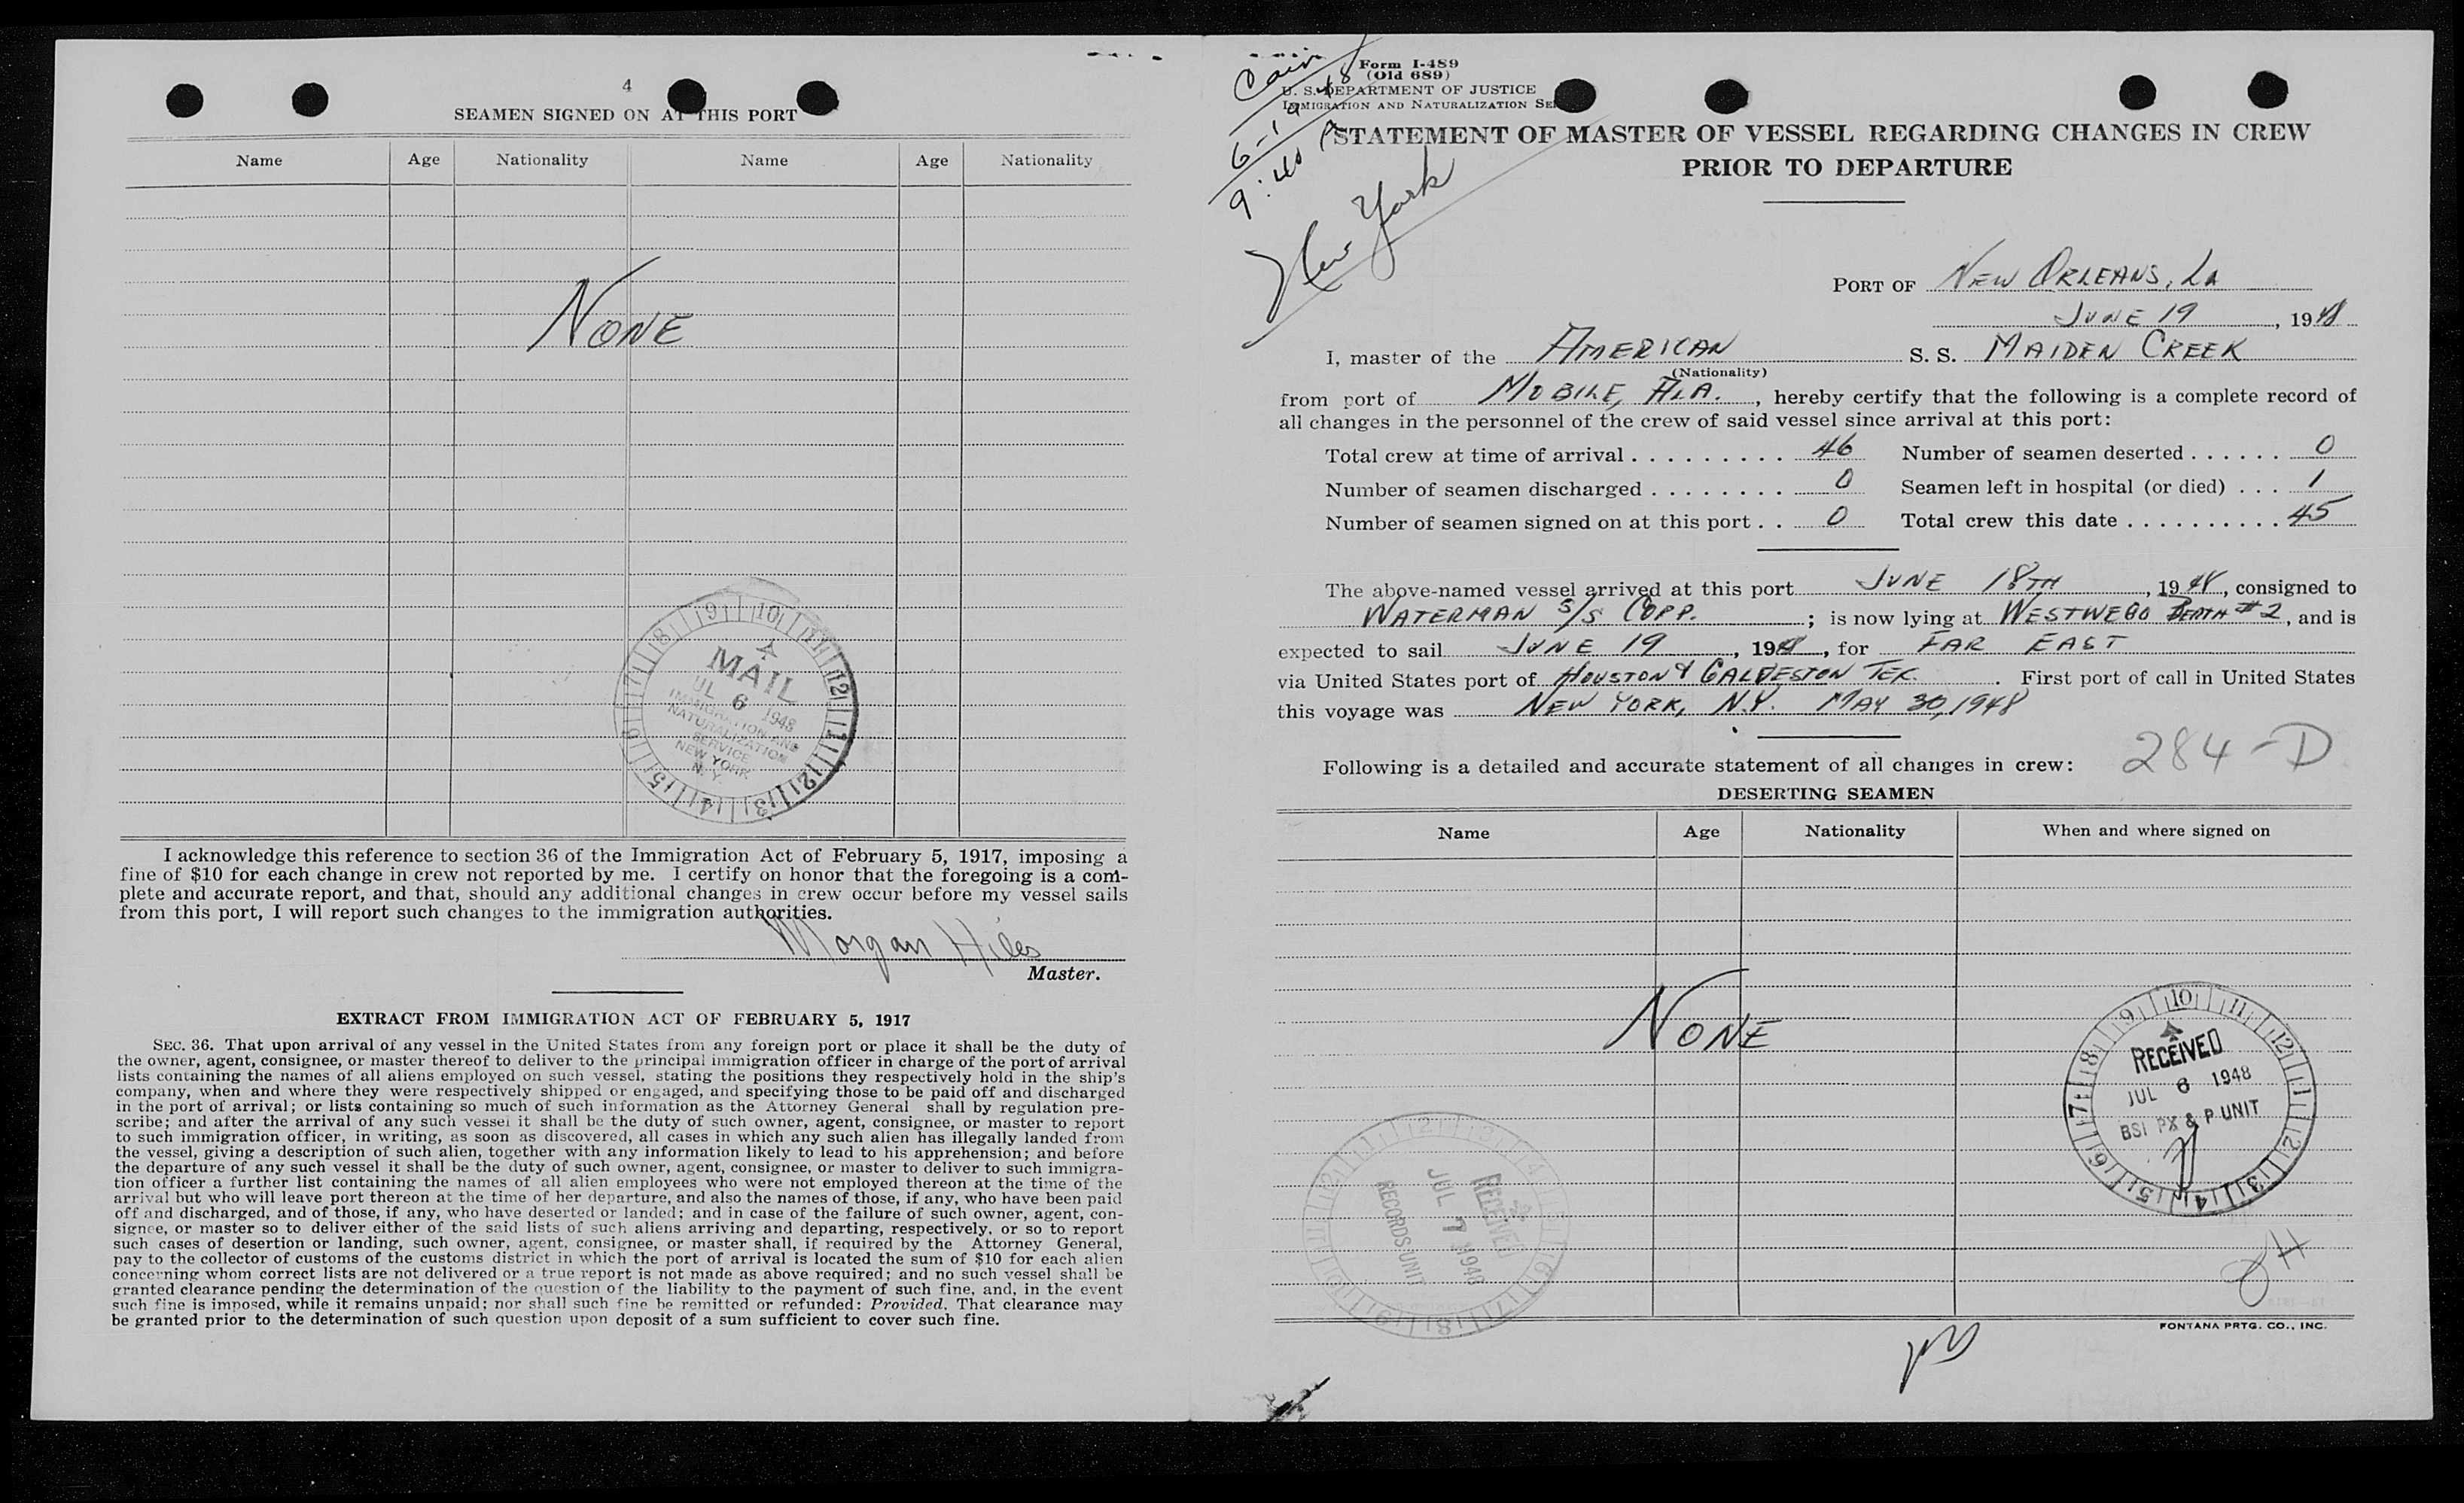 4
SEAMEN SIGNED ON AT THIS PORT
Name Age Nationality Name Age Nationality
NONE
MAIL
JUL 6 1948
IMMIGRATION AND
NATURALIZATION
SERVICE
NEW YORK
N. Y.
I acknowledge this reference to section 36 of the Immigration Act of February 5, 1917, imposing a
fine of $10 for each change in crew not reported by me. I certify on honor that the foregoing is a com-
plete and accurate report, and that, should any additional changes in crew occur before my vessel sails
from this port, I will report such changes to the immigration authorities.
Morgan Hiles
Master.
EXTRACT FROM IMMIGRATION ACT OF FEBRUARY 5, 1917
SEC. 36. That upon arrival of any vessel in the United States from any foreign port or place it shall be the duty of
the owner, agent, consignee, or master thereof to deliver to the principal immigration officer in charge of the port of arrival
lists containing the names of all aliens employed on such vessel, stating the positions they respectively hold in the ship's
company, when and where they were respectively shipped or engaged, and specifying those to be paid off and discharged
in the port of arrival; or lists containing so much of such information as the Attorney General shall by regulation pre-
scribe; and after the arrival of any such vessel it shall be the duty of such owner, agent, consignee, or master to report
to such immigration officer, in writing, as soon as discovered, all cases in which any such alien has illegally landed from
the vessel, giving a description of such alien, together with any information likely to lead to his apprehension; and before
the departure of any such vessel it shall be the duty of such owner, agent, consignee, or master to deliver to such immigra-
tion officer a further list containing the names of all alien employees who were not employed thereon at the time of the
arrival but who will leave port thereon at the time of her departure, and also the names of those, if any, who have been paid
off and discharged, and of those, if any, who have deserted or landed; and in case of the failure of such owner, agent, con-
signee, or master so to deliver either of the said lists of such aliens arriving and departing, respectively, or so to report
such cases of desertion or landing, such owner, agent, consignee, or master shall, if required by the Attorney General,
pay to the collector of customs of the customs district in which the port of arrival is located the sum of $10 for each alien
concerning whom correct lists are not delivered or a true report is not made as above required; and no such vessel shall be
granted clearance pending the determination of the question of the liability to the payment of such fine, and, in the event
such fine is imposed, while it remains unpaid; nor shall such fine be remitted or refunded: Provided, That clearance may
be granted prior to the determination of such question upon deposit of a sum sufficient to cover such fine.
6-19-48
9:40 P
New York
Form I-489
(Old 689)
U. S. DEPARTMENT OF JUSTICE
IMMIGRATION AND NATURALIZATION SE
STATEMENT OF MASTER OF VESSEL REGARDING CHANGES IN CREW
PRIOR TO DEPARTURE
PORT OF NEW ORLEANS, LA
JUNE 19, 1948
I, master of the AMERICAN S. S. MAIDEN CREEK
(Nationality)
from port of MOBILE, ALA., hereby certify that the following is a complete record of
all changes in the personnel of the crew of said vessel since arrival at this port:
Total crew at time of arrival 46 Number of seamen deserted 0
Number of seamen discharged 0 Seamen left in hospital (or died) 1
Number of seamen signed on at this port 0 Total crew this date 45
The above-named vessel arrived at this port JUNE 18TH, 1948, consigned to
WATERMAN S/S CORP.; is now lying at WESTWEGO BERTH #2, and is
expected to sail JUNE 19, 1948, for FAR EAST
via United States port of HOUSTON & GALVESTON TEX. First port of call in United States
this voyage was NEW YORK, N.Y. MAY 30, 1948
284-D
Following is a detailed and accurate statement of all changes in crew:
DESERTING SEAMEN
Name Age Nationality When and where signed on
NONE
RECEIVED
JUL 6 1948
BSI PX & P UNIT
RECEIVED
JUL 7 1948
RECORDS UNIT
FONTANA PRTG. CO., INC.